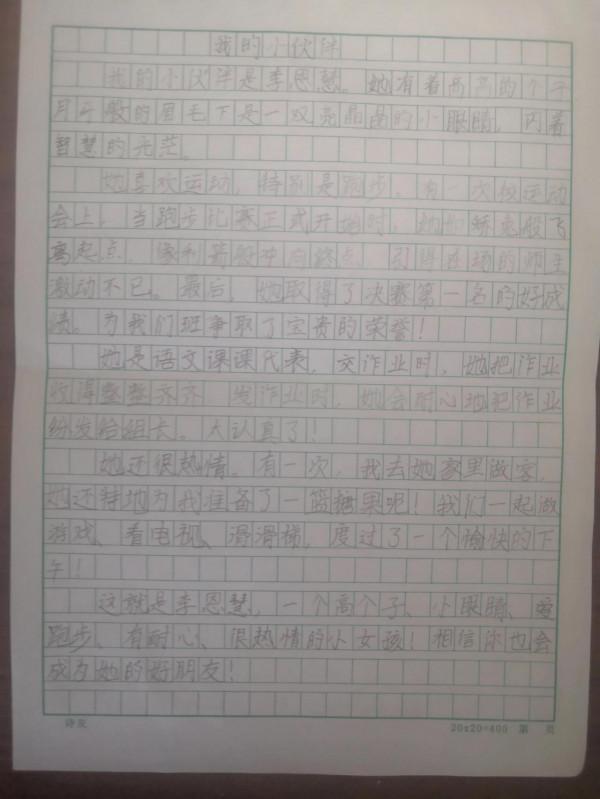 我的小伙伴
我的小伙伴是李恩慧。她有着高高的个子
月牙般的眉毛下是一双亮晶晶的小眼睛,闪着
智慧的光茫。
她喜欢运动,特别是跑步。有一次校运动
会上,当跑步比赛正式开始时,她如脱兔般飞
离起点,像利箭般冲向终点,引得在场的师生
激动不已。最后,她取得了决赛第一名的好成
绩。为我们班争取了宝贵的荣誉!
她是语文课课代表,交作业时,她把作业
收得整整齐齐,发作业时,她会耐心地把作业
纷发给组长。大认真了!
她还很热情。有一次,我去她家里做客,
她还特地为我准备了一篮糖果呢!我们一起做
游戏、看电视、滑滑梯,度过了一个愉快的下
午!
这就是李恩慧,一个高个子、小眼睛、爱
跑步、有耐心、很热情的小女孩!相信你也会
成为她的好朋友!
诗友 20x20=400 第 页